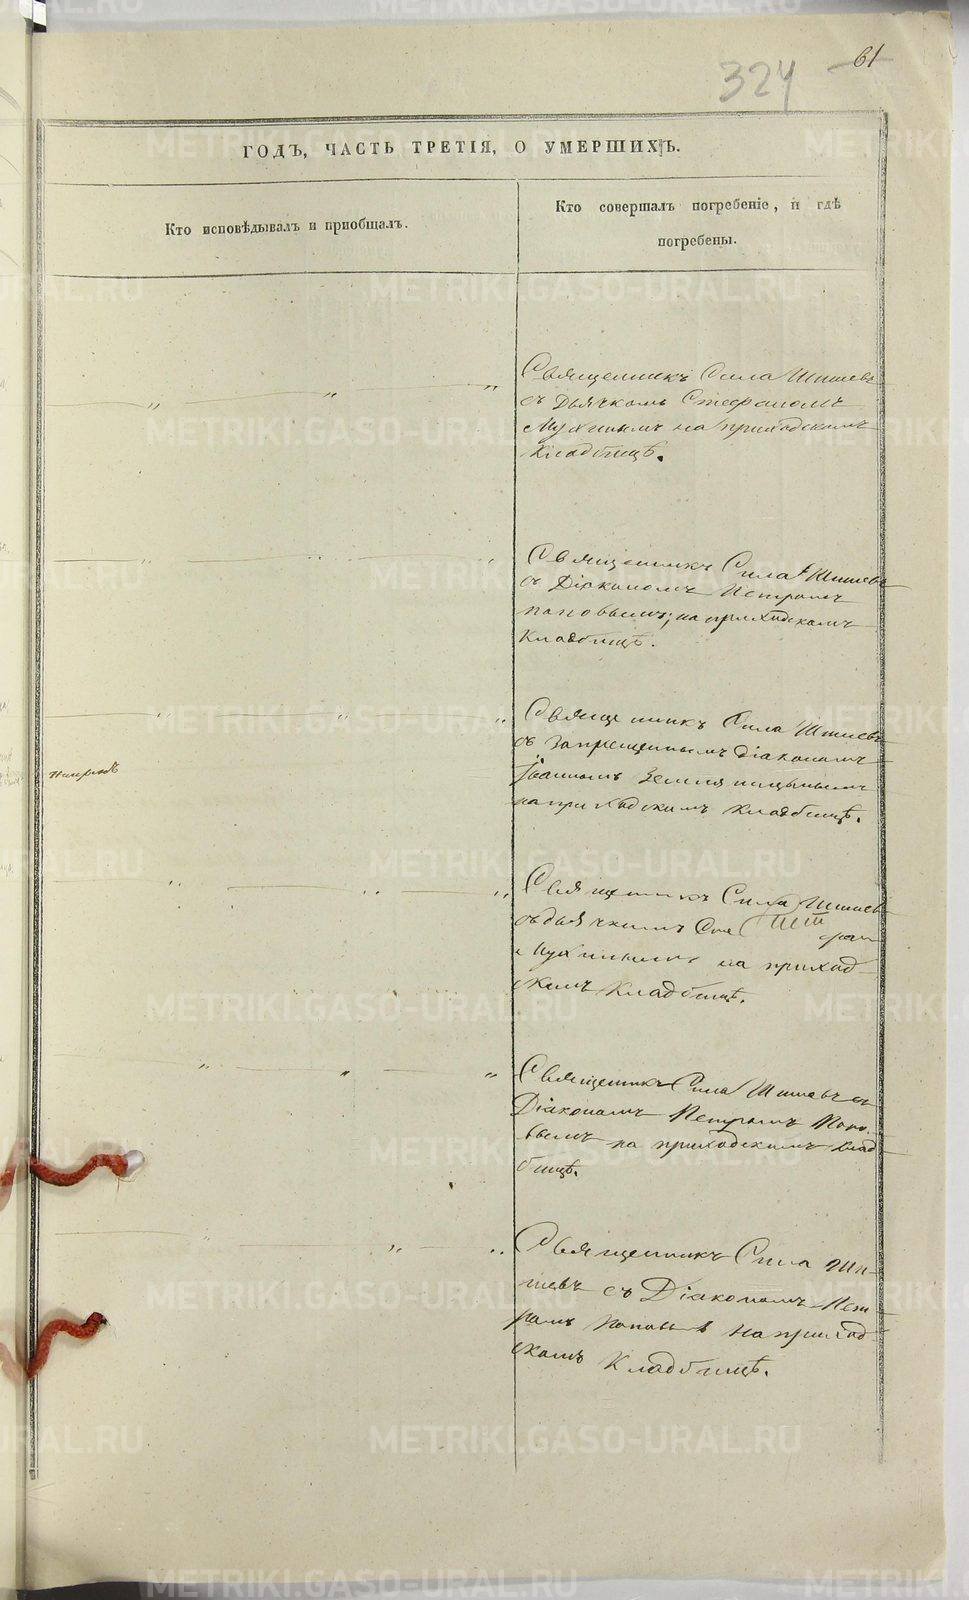 61
324
ГОДЪ, ЧАСТЬ ТРЕТІЯ, О УМЕРШИХЪ.
Кто исповѣдывалъ и приобщалъ.
Кто совершалъ погребеніе, и гдѣ
погребены.
Священникъ Сила Шишевъ
съ Дьячкомъ Стефаномъ
Мухинымъ на приходскомъ
Кладбищѣ.
Священникъ Сила Шишевъ
съ Діакономъ Петромъ
поповымъ; на приходскомъ
Кладбищѣ.
Священникъ Сила Шишевъ
съ запрещеннымъ діакономъ
Іоанномъ Земляницынымъ
на приходскомъ кладбищѣ.
Священникъ Сила Шишевъ
съ дьячкомъ Сте
Мухинымъ на приход-
скомъ Кладбищѣ.
Священникъ Сила Шишевъ съ
Діакономъ Петромъ Попо-
вымъ на приходскомъ Клад-
бищѣ.
Священникъ Сила Ши-
шевъ съ Діакономъ Пет-
ромъ на приход-
скомъ Кладбищѣ.
METRIKI.GASO-URAL.RU